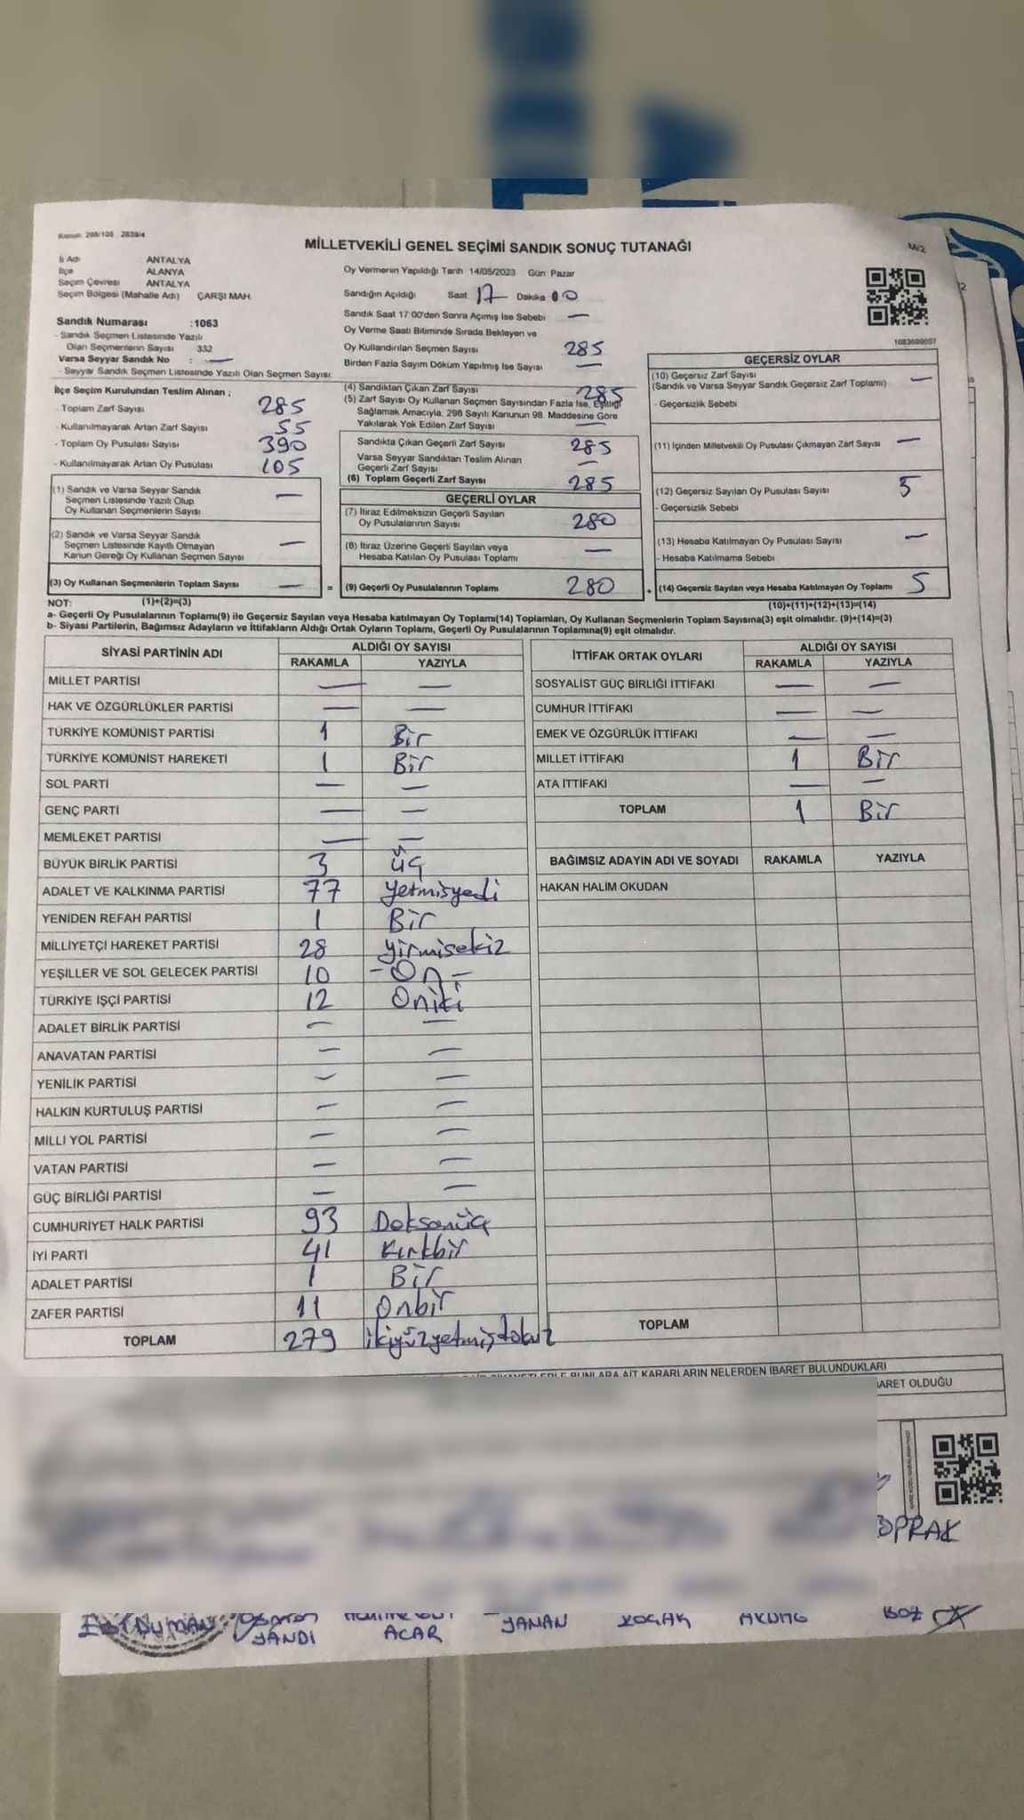 MİLLETVEKİLİ GENEL SEÇİMİ SANDIK SONUÇ TUTANAĞI
M/2
İli Adı ANTALYA
İlçe ALANYA
Seçim Çevresi ANTALYA
Seçim Bölgesi (Mahalle Adı) ÇARŞI MAH.
Oy Vermenin Yapıldığı Tarih 14/05/2023 Gün Pazar
Sandığın Açıldığı Saat 17 Dakika 00
Sandık Saat 17:00'den Sonra Açımış İse Sebebi —
Oy Verme Saati Bitiminde Sırada Bekleyen ve
Oy Kullandırılan Seçmen Sayısı 285
Birden Fazla Sayım Döküm Yapılmış İse Sayısı —
Sandık Numarası :1063
- Sandık Seçmen Listesinde Yazılı
Olan Seçmenlerin Sayısı 332
Varsa Seyyar Sandık No : —
- Seyyar Sandık Seçmen Listesinde Yazılı Olan Seçmen Sayısı:
İlçe Seçim Kurulundan Teslim Alınan ;
- Toplam Zarf Sayısı 285
- Kullanılmayarak Artan Zarf Sayısı 55
- Toplam Oy Pusulası Sayısı 390
- Kullanılmayarak Artan Oy Pusulası 105
(1) Sandık ve Varsa Seyyar Sandık
Seçmen Listesinde Yazılı Olup
Oy Kullanan Seçmenlerin Sayısı —
(2) Sandık ve Varsa Seyyar Sandık
Seçmen Listesinde Kayıtlı Olmayan
Kanun Gereği Oy Kullanan Seçmen Sayısı —
(3) Oy Kullanan Seçmenlerin Toplam Sayısı —
(1)+(2)=(3)
(4) Sandıktan Çıkan Zarf Sayısı 285
(5) Zarf Sayısı Oy Kullanan Seçmen Sayısından Fazla İse, Eşitliği
Sağlamak Amacıyla, 298 Sayılı Kanunun 98. Maddesine Göre
Yakılarak Yok Edilen Zarf Sayısı —
Sandıkta Çıkan Geçerli Zarf Sayısı 285
Varsa Seyyar Sandıktan Teslim Alınan
Geçerli Zarf Sayısı —
(6) Toplam Geçerli Zarf Sayısı 285
GEÇERLİ OYLAR
(7) İtiraz Edilmeksizin Geçerli Sayılan
Oy Pusulalarının Sayısı 280
(8) İtiraz Üzerine Geçerli Sayılan veya
Hesaba Katılan Oy Pusulası Toplamı —
= (9) Geçerli Oy Pusulalarının Toplamı 280
1083600057
GEÇERSİZ OYLAR
(10) Geçersiz Zarf Sayısı —
(Sandık ve Varsa Seyyar Sandık Geçersiz Zarf Toplamı)
- Geçersizlik Sebebi
(11) İçinden Milletvekili Oy Pusulası Çıkmayan Zarf Sayısı —
(12) Geçersiz Sayılan Oy Pusulası Sayısı 5
- Geçersizlik Sebebi
(13) Hesaba Katılmayan Oy Pusulası Sayısı —
- Hesaba Katılmama Sebebi
+ (14) Geçersiz Sayılan veya Hesaba Katılmayan Oy Toplamı 5
(10)+(11)+(12)+(13)=(14)
NOT:
a- Geçerli Oy Pusulalarının Toplamı(9) ile Geçersiz Sayılan veya Hesaba Katılmayan Oy Toplamı(14) Toplamları, Oy Kullanan Seçmenlerin Toplam Sayısına(3) eşit olmalıdır. (9)+(14)=(3)
b- Siyasi Partilerin, Bağımsız Adayların ve İttifakların Aldığı Ortak Oyların Toplamı, Geçerli Oy Pusulalarının Toplamına(9) eşit olmalıdır.
SİYASİ PARTİNİN ADI ALDIĞI OY SAYISI
RAKAMLA YAZIYLA
MİLLET PARTİSİ — —
HAK VE ÖZGÜRLÜKLER PARTİSİ — —
TÜRKİYE KOMÜNİST PARTİSİ 1 Bir
TÜRKİYE KOMÜNİST HAREKETİ 1 Bir
SOL PARTİ — —
GENÇ PARTİ — —
MEMLEKET PARTİSİ — —
BÜYÜK BİRLİK PARTİSİ 3 üç
ADALET VE KALKINMA PARTİSİ 77 yetmişyedi
YENİDEN REFAH PARTİSİ 1 Bir
MİLLİYETÇİ HAREKET PARTİSİ 28 yirmisekiz
YEŞİLLER VE SOL GELECEK PARTİSİ 10 -On-
TÜRKİYE İŞÇİ PARTİSİ 12 Oniki
ADALET BİRLİK PARTİSİ — —
ANAVATAN PARTİSİ — —
YENİLİK PARTİSİ — —
HALKIN KURTULUŞ PARTİSİ — —
MİLLİ YOL PARTİSİ — —
VATAN PARTİSİ — —
GÜÇ BİRLİĞİ PARTİSİ — —
CUMHURİYET HALK PARTİSİ 93 Doksanüç
İYİ PARTİ 41 Kırkbir
ADALET PARTİSİ 1 Bir
ZAFER PARTİSİ 11 Onbir
TOPLAM 279 ikiyüzyetmişdokuz
İTTİFAK ORTAK OYLARI ALDIĞI OY SAYISI
RAKAMLA YAZIYLA
SOSYALİST GÜÇ BİRLİĞİ İTTİFAKI — —
CUMHUR İTTİFAKI — —
EMEK VE ÖZGÜRLÜK İTTİFAKI — —
MİLLET İTTİFAKI 1 Bir
ATA İTTİFAKI — —
TOPLAM 1 Bir
BAĞIMSIZ ADAYIN ADI VE SOYADI RAKAMLA YAZIYLA
HAKAN HALİM OKUDAN
TOPLAM
BUNLARA AİT KARARLARIN NELERDEN İBARET BULUNDUKLARI
OLDUĞU
DUMAN YANDI ACAR YANAN KOÇAK BOZ